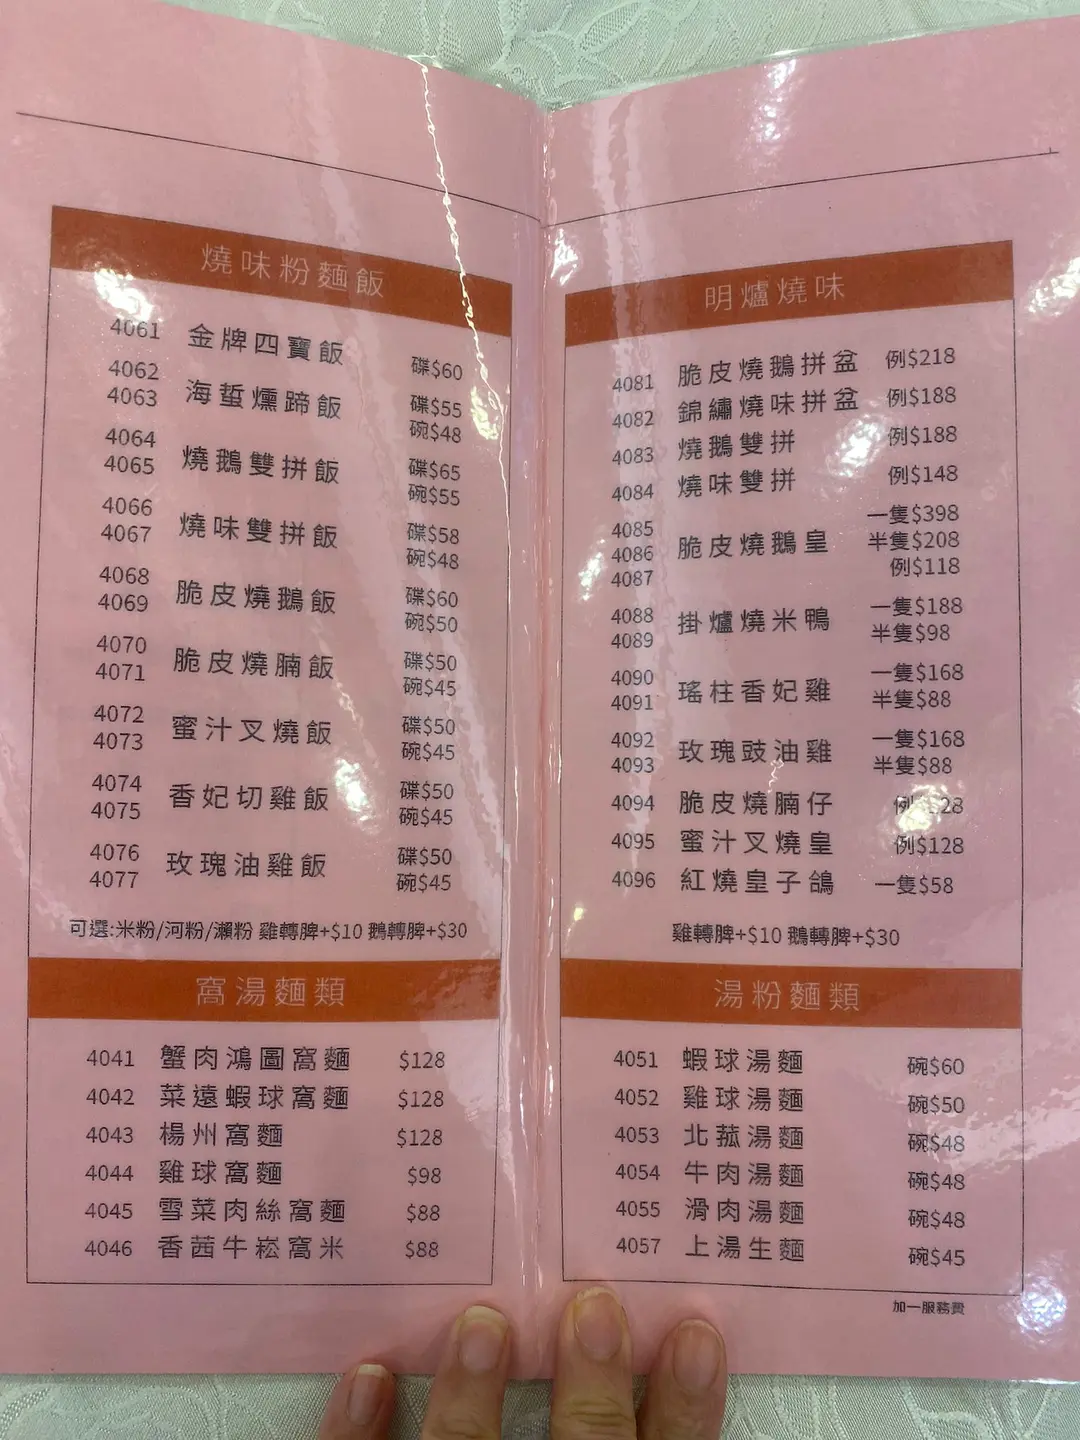 燒味粉麵飯
4061 金牌四寶飯 碟$60
4062 海蜇燻蹄飯 碟$55
4063 碗$48
4064 燒鵝雙拼飯 碟$65
4065 碗$55
4066 燒味雙拼飯 碟$58
4067 碗$48
4068 脆皮燒鵝飯 碟$60
4069 碗$50
4070 脆皮燒腩飯 碟$50
4071 碗$45
4072 蜜汁叉燒飯 碟$50
4073 碗$45
4074 香妃切雞飯 碟$50
4075 碗$45
4076 玫瑰油雞飯 碟$50
4077 碗$45
可選:米粉/河粉/瀨粉 雞轉脾+$10 鵝轉脾+$30
窩湯麵類
4041 蟹肉鴻圖窩麵 $128
4042 菜遠蝦球窩麵 $128
4043 楊州窩麵 $128
4044 雞球窩麵 $98
4045 雪菜肉絲窩麵 $88
4046 香茜牛崧窩米 $88
明爐燒味
4081 脆皮燒鵝拼盆 例$218
4082 錦繡燒味拼盆 例$188
4083 燒鵝雙拼 例$188
4084 燒味雙拼 例$148
4085 一隻$398
4086 脆皮燒鵝皇 半隻$208
4087 例$118
4088 掛爐燒米鴨 一隻$188
4089 半隻$98
4090 瑤柱香妃雞 一隻$168
4091 半隻$88
4092 玫瑰豉油雞 一隻$168
4093 半隻$88
4094 脆皮燒腩仔
4095 蜜汁叉燒皇 例$128
4096 紅燒皇子鴿 一隻$58
雞轉脾+$10 鵝轉脾+$30
湯粉麵類
4051 蝦球湯麵 碗$60
4052 雞球湯麵 碗$50
4053 北菰湯麵 碗$48
4054 牛肉湯麵 碗$48
4055 滑肉湯麵 碗$48
4057 上湯生麵 碗$45
加一服務費